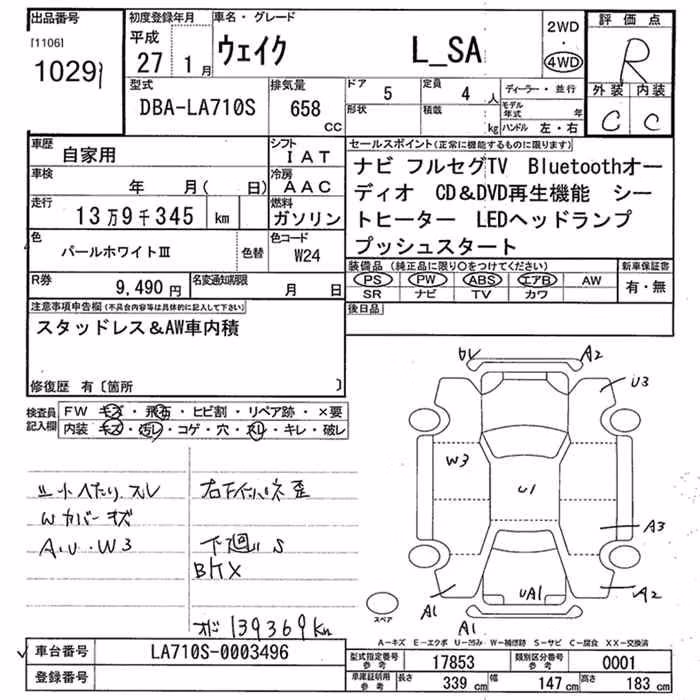 出品番号
[1106]
1029
初度登録年月
平成
27 1月
車名・グレード
ウェイク L_SA
2WD
・
4WD
評価点
R
外装 内装
C C
型式
DBA-LA710S
排気量
658
CC
ドア 5
定員 4 人
形状
積載 kg
ディーラー・並行
モデル年式 年
ハンドル 左・右
車歴
自家用
シフト
IAT
車検
年 月( 日)
冷房
AAC
走行
13万9千345 km
燃料
ガソリン
色
パールホワイトⅢ
色替
色コード
W24
R券
9,490円
名変通知期限
月 日
セールスポイント(正常に機能するものに限ります)
ナビ フルセグTV Bluetoothオー
ディオ CD&DVD再生機能 シー
トヒーター LEDヘッドランプ
プッシュスタート
装備品(純正品に限り○をつけてください)
PS PW ABS エアB AW
SR ナビ TV カワ
新車保証書
有・無
後日品
注意事項申告欄(不具合内容等は具体的に記入して下さい)
スタッドレス&AW車内積
修復歴 有〔箇所 〕
検査員
記入欄
FW キズ・飛石・ヒビ割・リペア跡・×要
内装 キズ・汚レ・コゲ・穴・スレ・キレ・破レ
シート ヘたり、スレ
Wカバー キズ
A.U.W3
下廻り S
オド 139369km
A2
U3
W3
U1
A3
UA1
A2
A1
A1
スペア
A-キズ E-エクボ U-凹み W-補修跡 S-サビ C-腐食 XX-交換済
車台番号
LA710S-0003496
登録番号
型式指定番号
参考
17853
類別区分番号
参考
0001
車庫証明用
参考
長さ 339 cm
幅 147 cm
高さ 183 cm